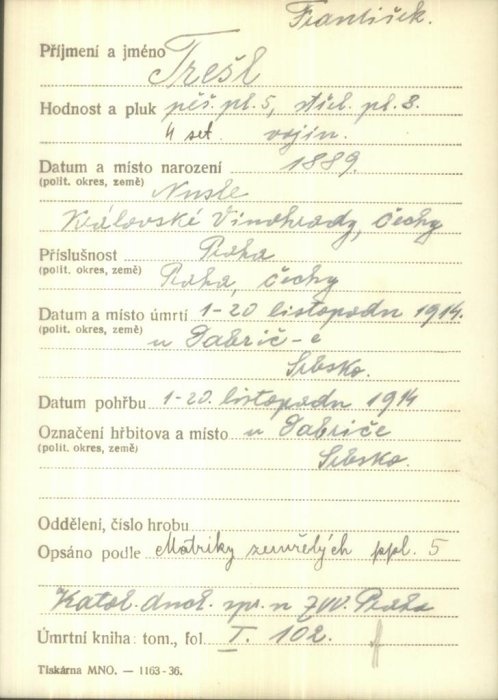 František.
Příjmení a jméno Trešl
Hodnost a pluk pěš. pl. 5, střel. pl. 8.
4 set. vojín.
Datum a místo narození 1889.
(polit. okres, země) Nusle
Královské Vinohrady, Čechy
Příslušnost Praha
(polit. okres, země) Praha, Čechy
Datum a místo úmrtí 1-20 listopadu 1914.
(polit. okres, země) u Šabrič-e
Srbsko.
Datum pohřbu 1-20. listopadu 1914
Označení hřbitova a místo u Šabriče
(polit. okres, země) Srbsko.
Oddělení, číslo hrobu
Opsáno podle Matriky zemřelých ppl. 5
Katol. duch. spr. n ZVV. Praha
Úmrtní kniha: tom., fol. I. 102.
Tiskárna MNO. — 1163-36.